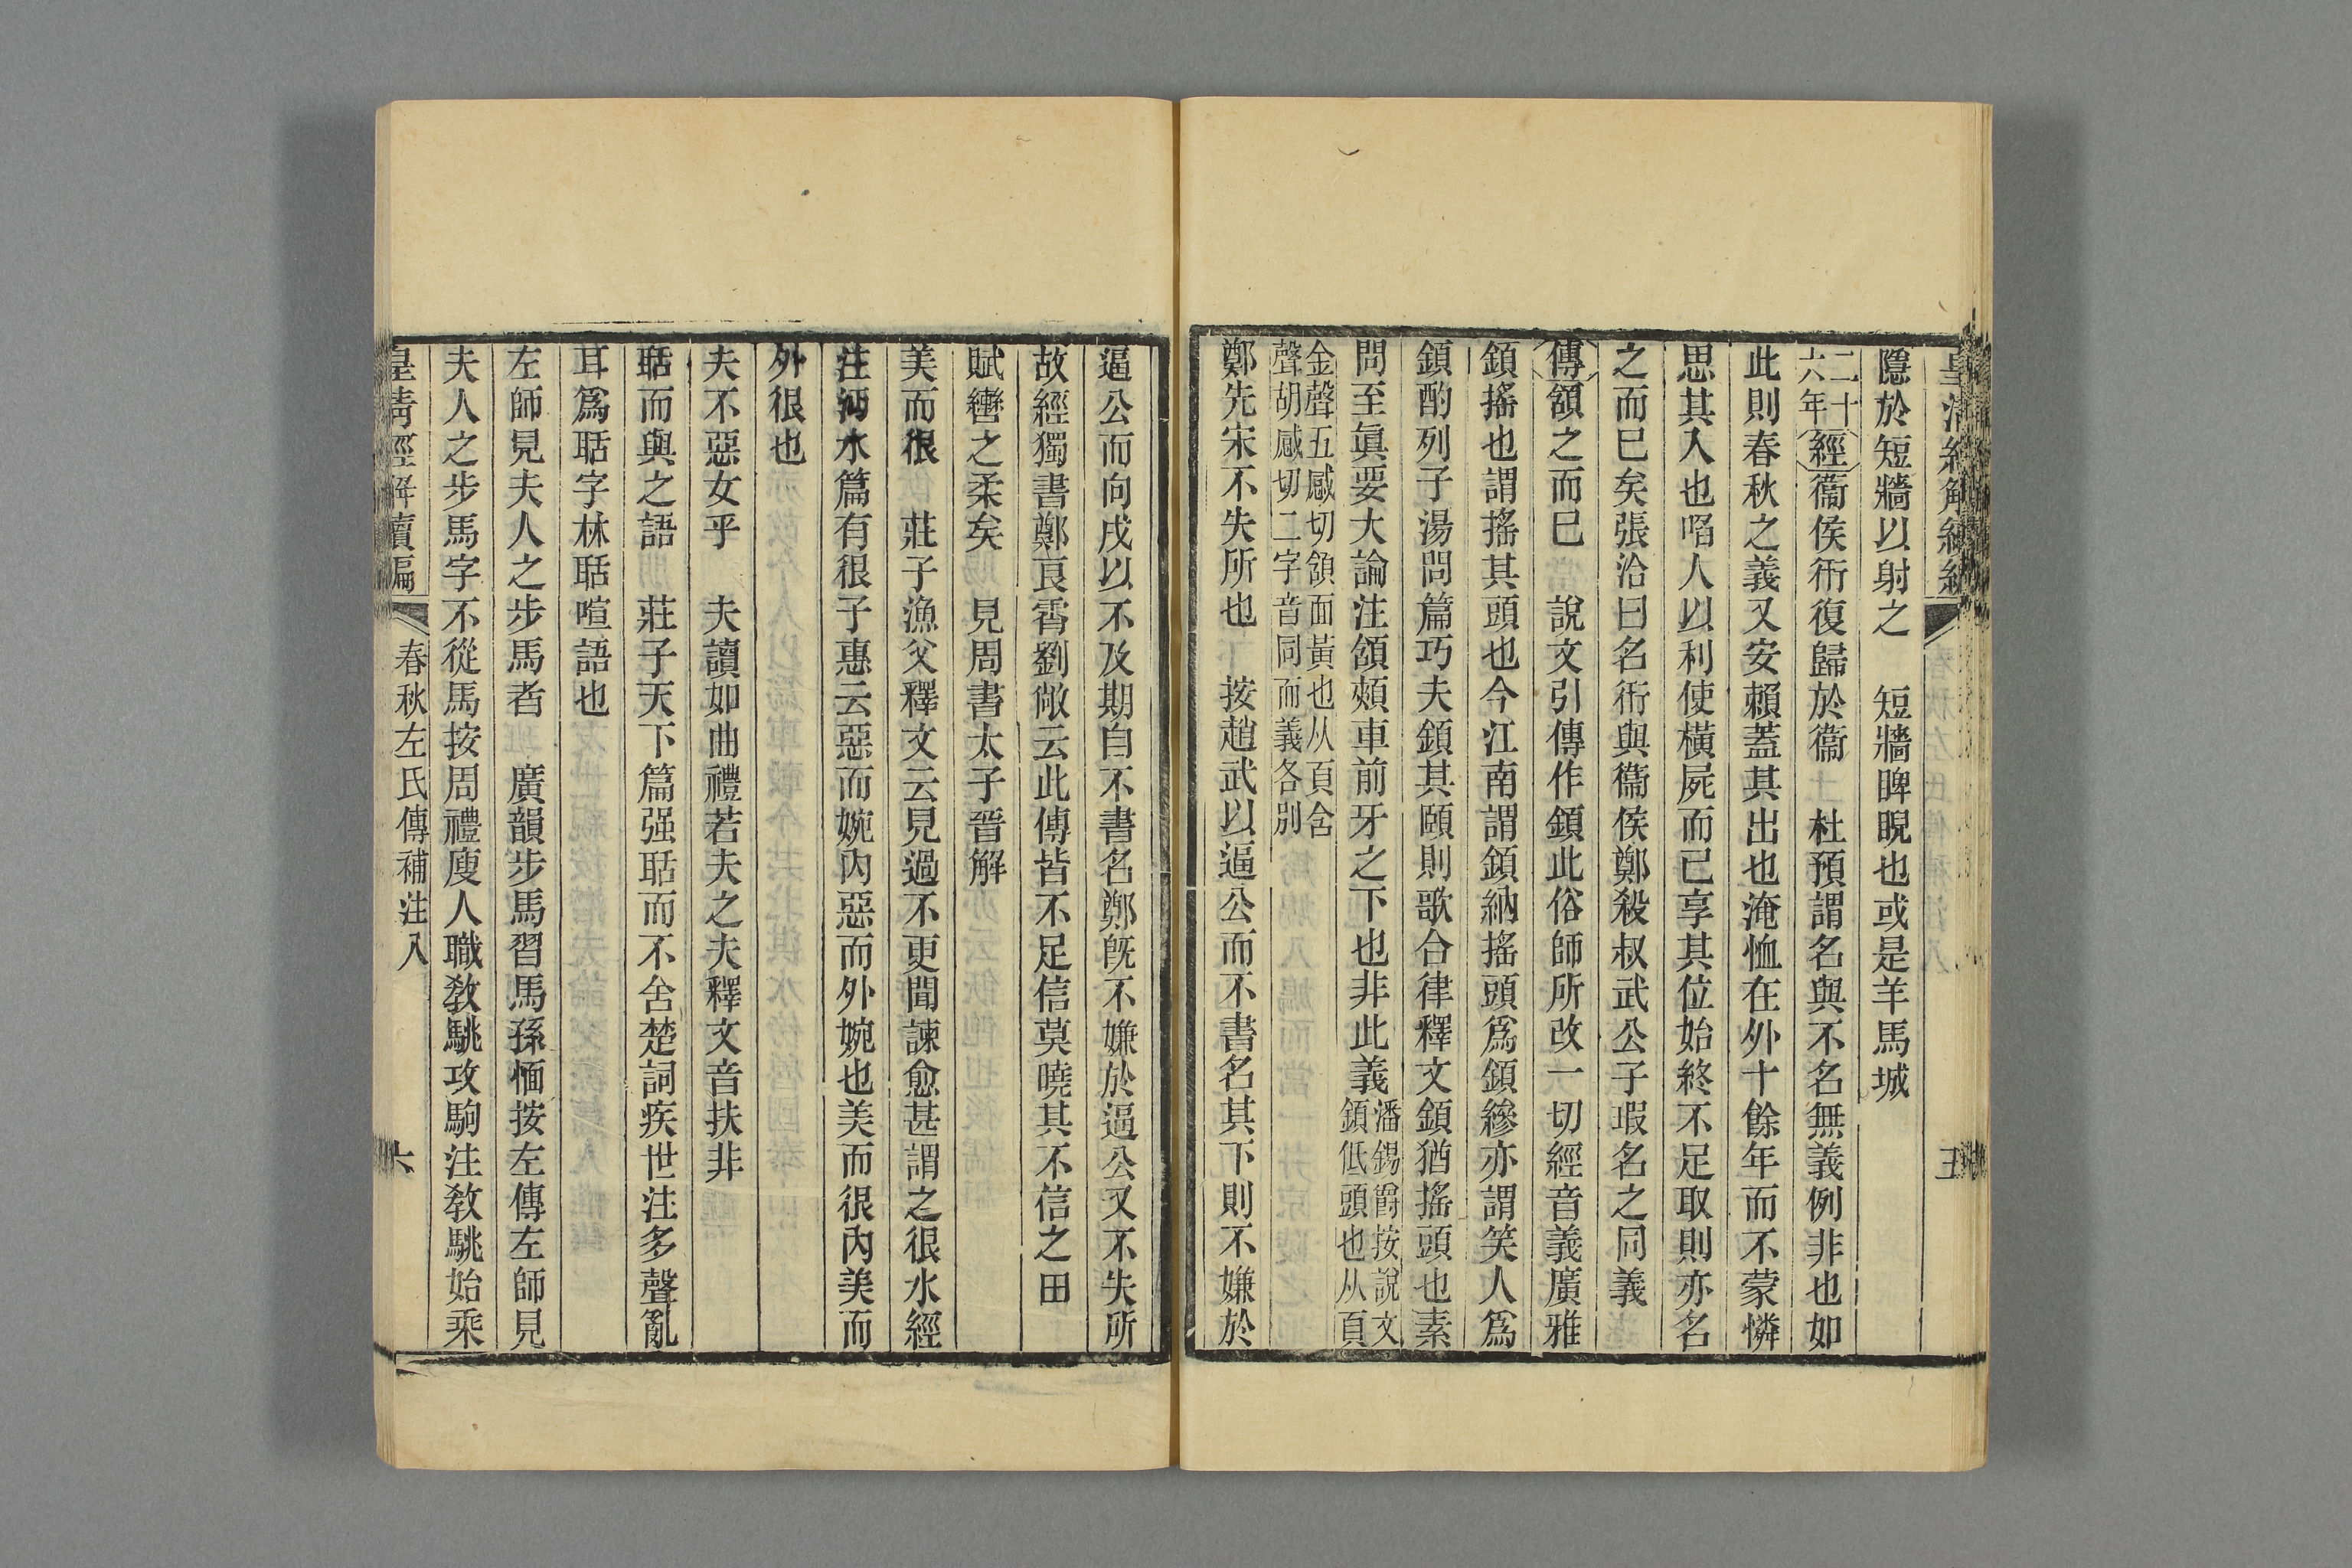 隱於短牆以射之　短牆睥睨也或是羊馬城
二十六年經衞侯衎復歸於衞　杜預謂名與不名無義例非也如
此則春秋之義又安賴蓋其出也淹恤在外十餘年而不蒙憐
思其入也啗人以利使橫屍而已享其位始終不足取則亦名
之而巳矣張洽曰名衎與衞侯鄭殺叔武公子瑕名之同義
傳頷之而巳　說文引傳作顉此俗師所改一切經音義廣雅
顉搖也謂搖其頭也今江南謂顉納搖頭爲顉縿亦謂笑人爲
顉酌列子湯問篇巧夫顉其頤則歌合律釋文顉猶搖頭也素
問至眞要大論注頷頰車前牙之下也非此義潘錫爵按說文顉低頭也从頁
金聲五感切頷面黃也从頁含聲胡感切二字音同而義各別
鄭先宋不失所也　按趙武以逼公而不書名其下則不嫌於
逼公而向戌以不及期白不書名鄭旣不嫌於逼公又不失所
故經獨書鄭良霄劉敞云此傳皆不足信莫曉其不信之田
賦轡之柔矣　見周書太子晉解
美而很　莊子漁父釋文云見過不更聞諫愈甚謂之很水經
注沔水篇有很子惠云惡而婉內惡而外婉也美而很內美而
外很也
夫不惡女乎　夫讀如曲禮若夫之夫釋文音扶非
聒而與之語　莊子天下篇强聒而不舍楚詞疾世注多聲亂
耳爲聒字林聒喧語也
左師見夫人之步馬者　廣韻步馬習馬孫愐按左傳左師見
夫人之步馬字不從馬按周禮廋人職敎駣攻駒注敎駣始乘
皇淸經解續編　春秋左氏傳補注八　六